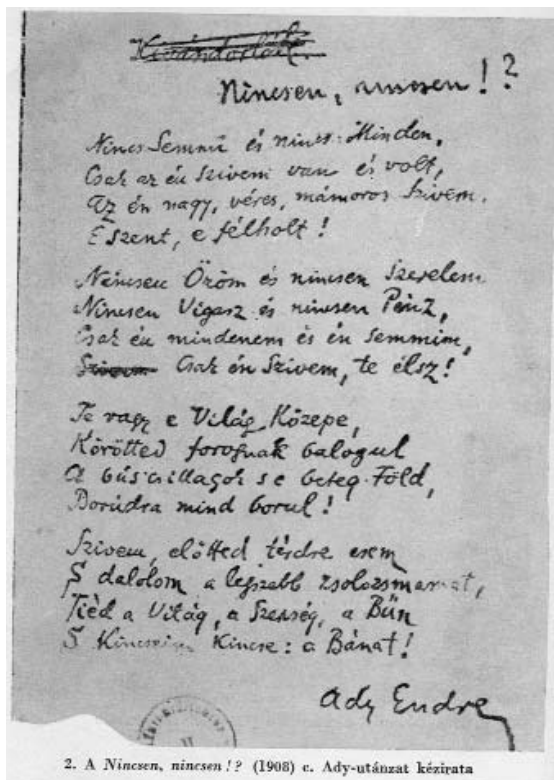 Kivándorlók.
Nincsen, nincsen!?
Nincs Semmi és nincs Minden,
Csak az én szivem van és volt,
Az én nagy, véres, mámoros Szivem.
E szent, e félholt!
Nincsen Öröm és nincsen Szerelem
Nincsen Vigasz és nincsen Pénz,
Csak én mindenem és én semmim,
Szivem Csak én Szivem, te élsz!
Te vagy e Világ Közepe,
Körötted forognak balogul
A bús csillagok s e beteg Föld,
Borúdra mind borul!
Szivem, előtted térdre esem
S dalolom a legszebb zsolozsmámat,
Tiéd a Világ, a Szépség, a Bűn
S Kincseim Kincse: a Bánat!
Ady Endre
2. A Nincsen, nincsen!? (1908) c. Ady-utánzat kézirata